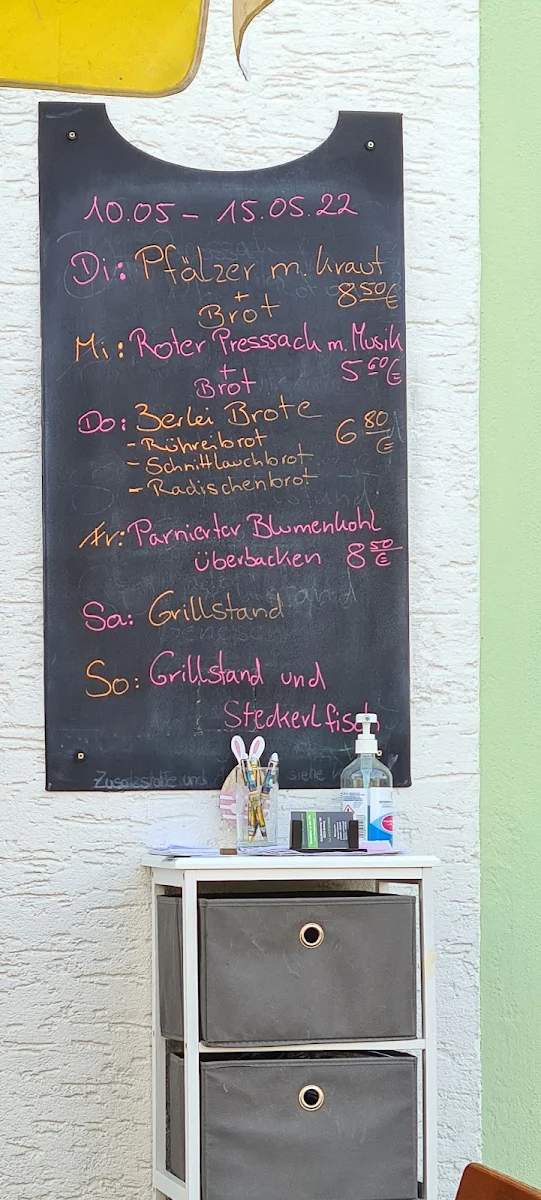 10.05 - 15.05.22
Di: Pfälzer m. Kraut
+ 8 50 €
Brot
Mi: Roter Presssach m. Musik
+ 5 60 €
Brot
Do: 3erlei Brote
- Rühreibrot 6 80 €
- Schnittlauchbrot
- Radischenbrot
Fr: Parnierter Blumenkohl
überbacken 8 50 €
Sa: Grillstand
So: Grillstand und
Steckerlfisch
Zusatzstoffe und siehe